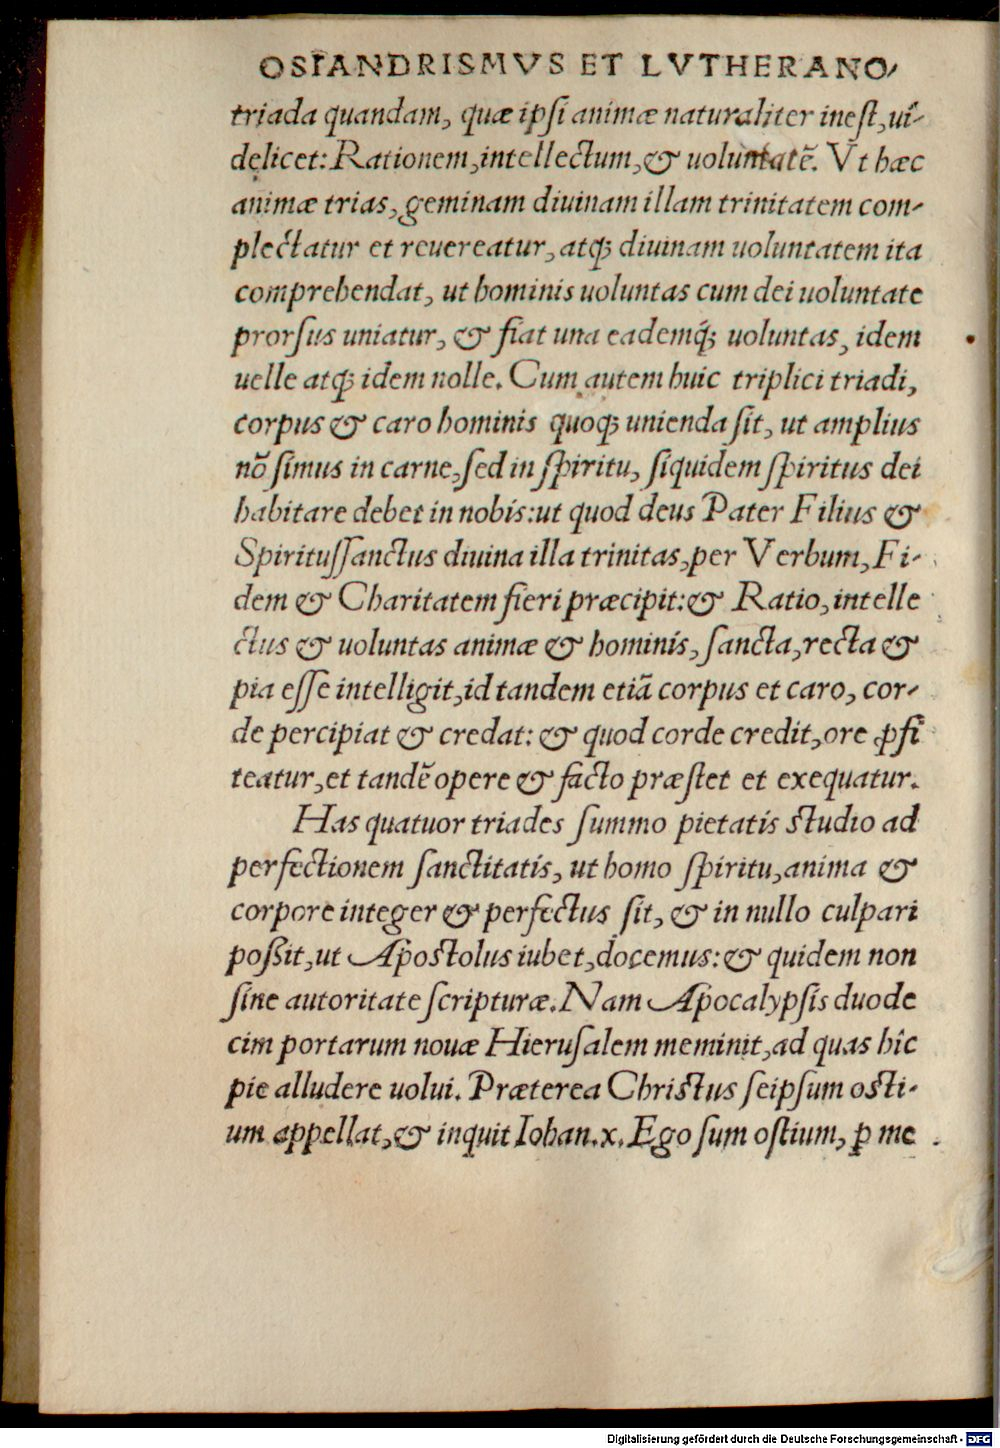 OSIANDRISMVS ET LVTHERANO-
triada quandam, quæ ipsi animæ naturaliter inest, ui-
delicet: Rationem, intellectum, & uoluntatē. Vt hæc
animæ trias, geminam diuinam illam trinitatem com-
plectatur et reuereatur, atq; diuinam uoluntatem ita
comprehendat, ut hominis uoluntas cum dei uoluntate
prorsus uniatur, & fiat una eademq́; uoluntas, idem
uelle atq; idem nolle. Cum autem huic triplici triadi,
corpus & caro hominis quoq; unienda sit, ut amplius
nō simus in carne, sed in spiritu, siquidem spiritus dei
habitare debet in nobis: ut quod deus Pater Filius &
Spiritussanctus diuina illa trinitas, per Verbum, Fi-
dem & Charitatem fieri præcipit: & Ratio, intelle
ctus & uoluntas animæ & hominis, sancta, recta &
pia esse intelligit, id tandem etiā corpus et caro, cor-
de percipiat & credat: & quod corde credit, ore ꝓfi
teatur, et tandē opere & facto præstet et exequatur.
Has quatuor triades summo pietatis studio ad
perfectionem sanctitatis, ut homo spiritu, anima &
corpore integer & perfectus sit, & in nullo culpari
poßit, ut Apostolus iubet, docemus: & quidem non
sine autoritate scripturæ. Nam Apocalypsis duode
cim portarum nouæ Hierusalem meminit, ad quas hîc
pie alludere uolui. Præterea Christus seipsum osti-
um appellat, & inquit Iohan. x. Ego sum ostium, ꝑ me
Digitalisierung gefördert durch die Deutsche Forschungsgemeinschaft - DFG